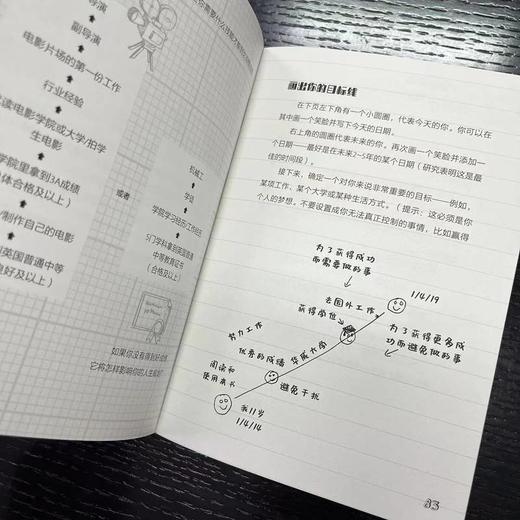 导演
副导演
电影片场的第一份工作
行业经验
读电影学院或大学/拍学
生电影
学院里拿到3A成绩
具体合格及以上）
制作自己的电影
英国普通中等
良好及以上）
或者
机械工
实习
学院学习经历/工作经历
5门学科拿到英国普通
中等教育证书
（合格及以上）
如果你没有得到好成绩，
它将怎样影响你的人生规划？
画出你的目标线
在下页左下角有一个小圆圈，代表今天的你。你可以在
其中画一个笑脸并写下今天的日期。
右上角的圆圈代表未来的你。再次画一个笑脸并添加一
个日期——最好是在未来2~5年的某个日期（研究表明这是最
佳的时间段）。
接下来，确定一个对你来说非常重要的目标——例如，
某项工作、某个大学或某种生活方式。（提示：这必须是你
个人的梦想。不要设置成你无法真正控制的事情，比如赢得
为了获得成功
而需要做的事
1/4/19
去国外工作
获得学位
为了获得更多成
功而避免做的事
努力工作
优秀的成绩
华威大学
阅读和
使用本书
避免干扰
我11岁
1/4/14
83